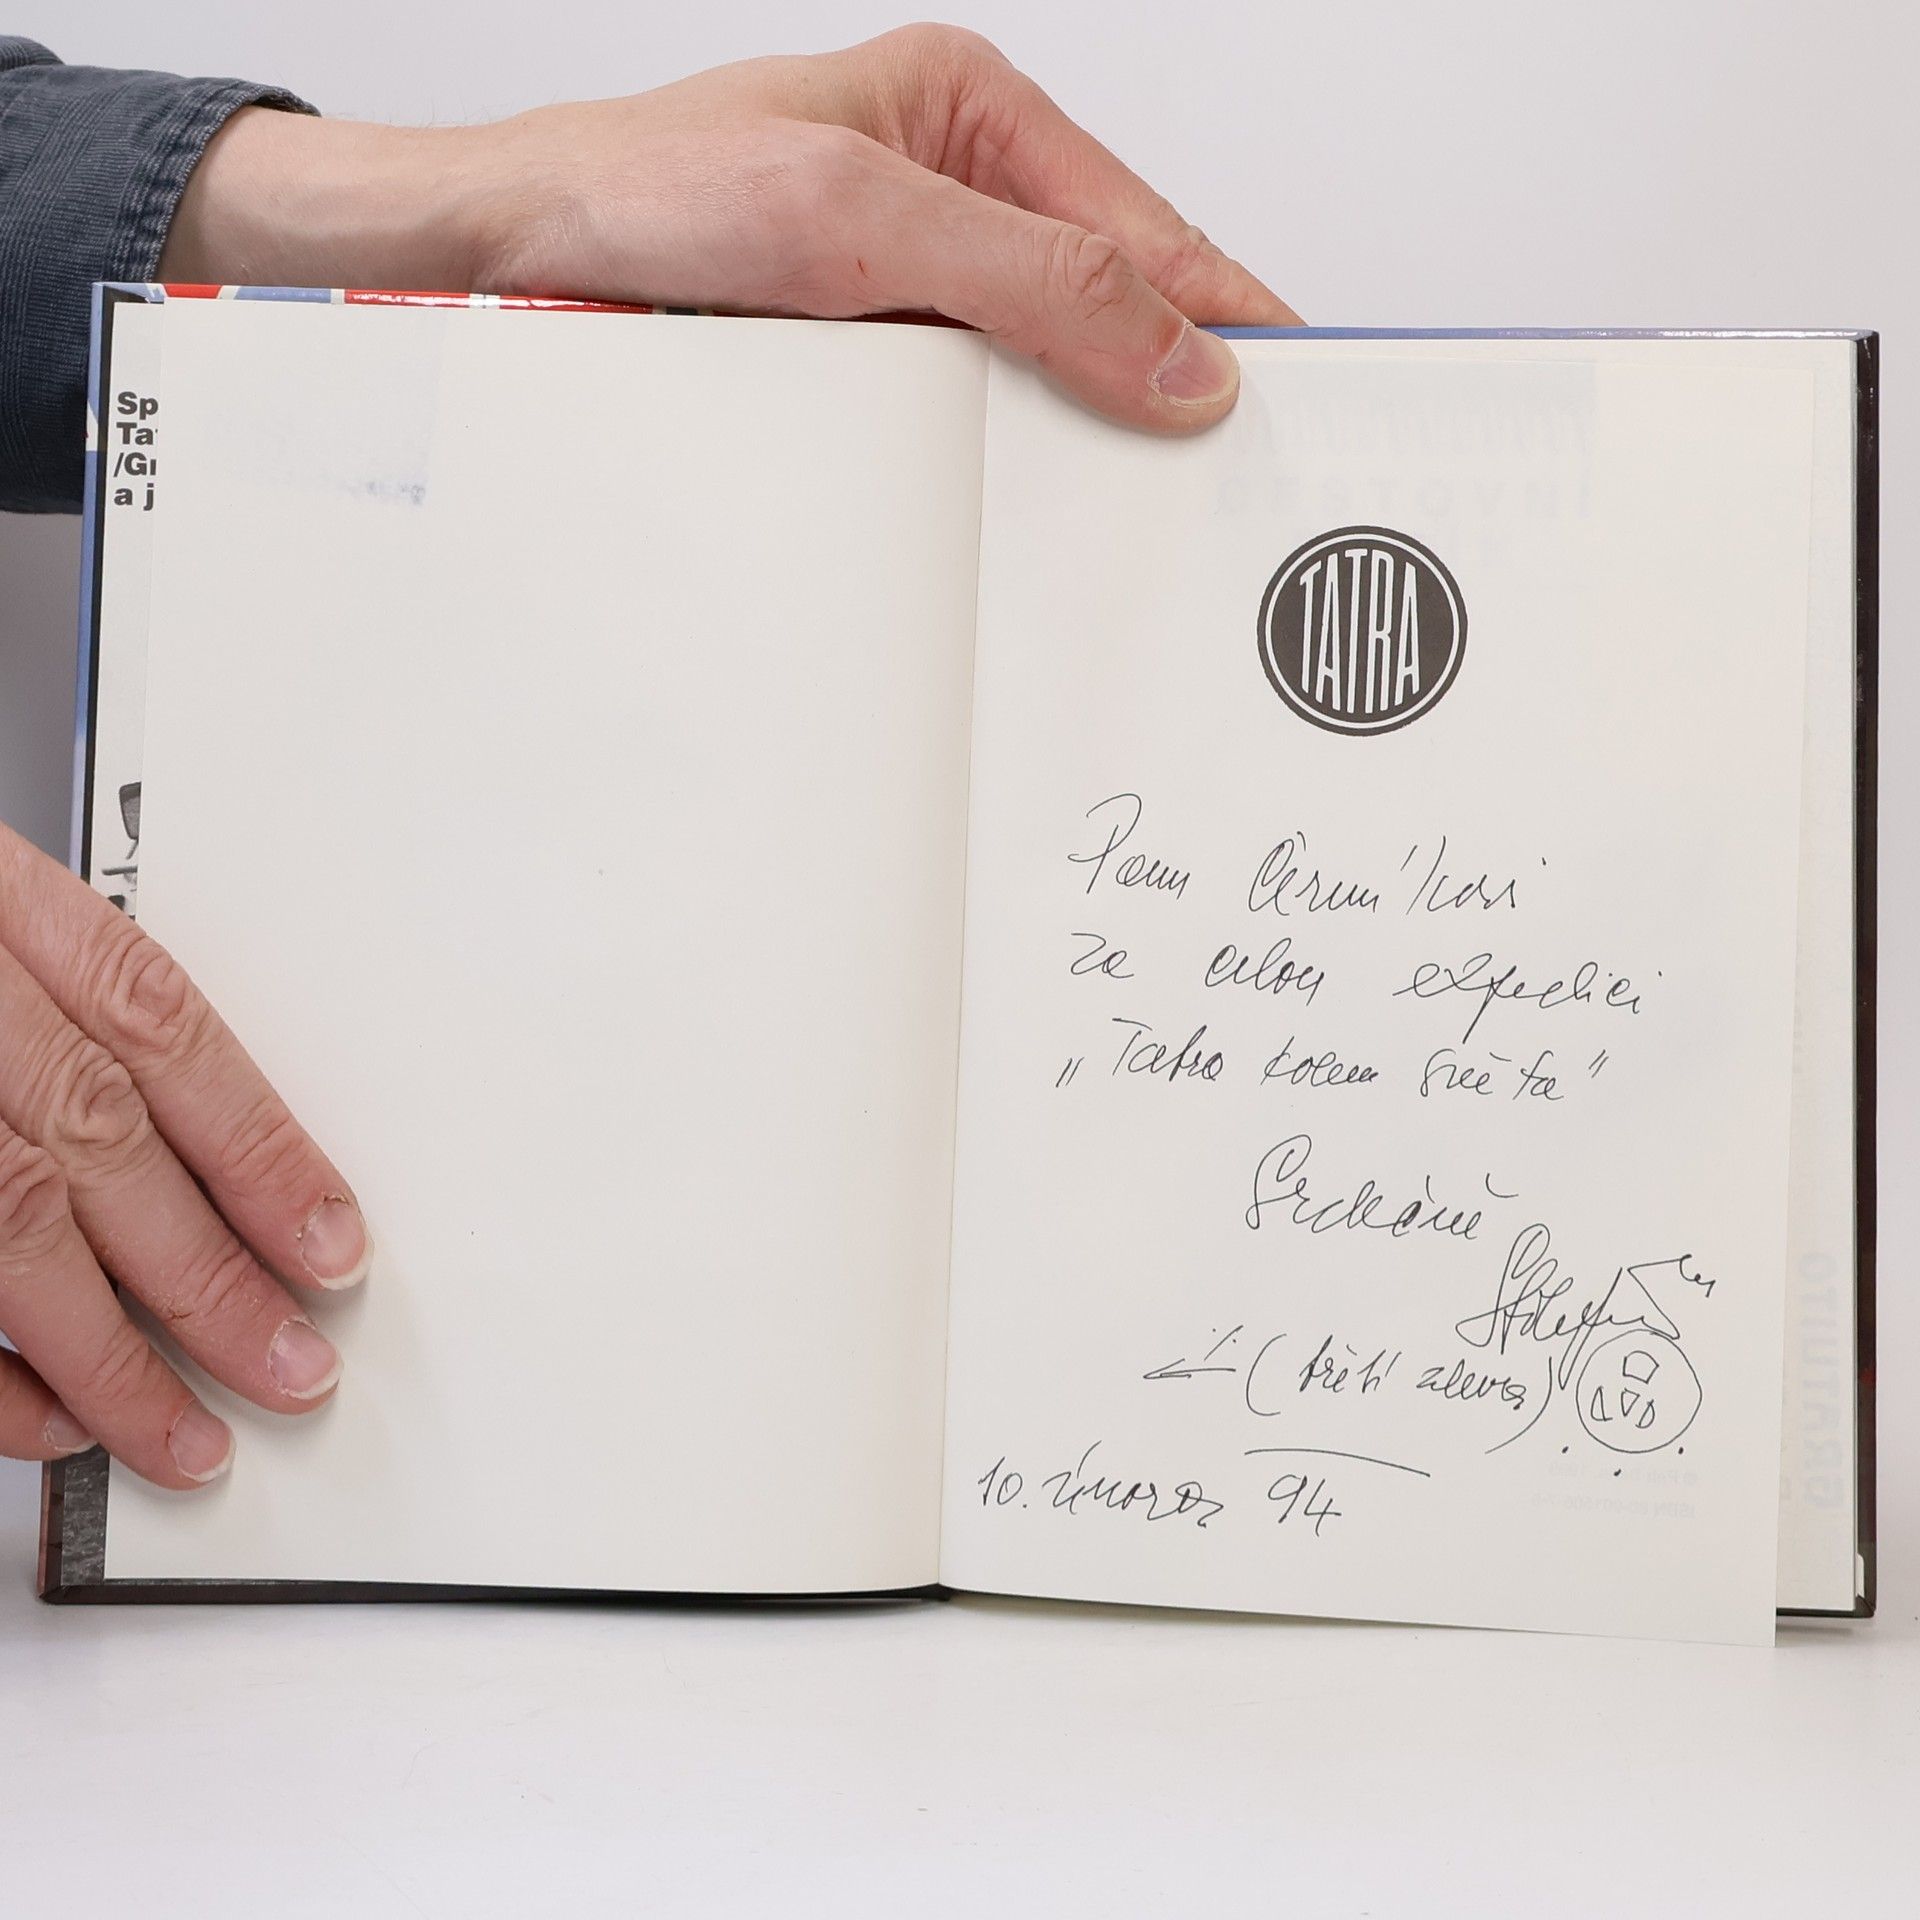 Sp
Ta
/Gr
a j
TATRA
Panu Černíkovi
za celou expedici
„Tatra kolem světa"
Srdečně
·/. (třetí zleva)
10. února 94
GRATUITO